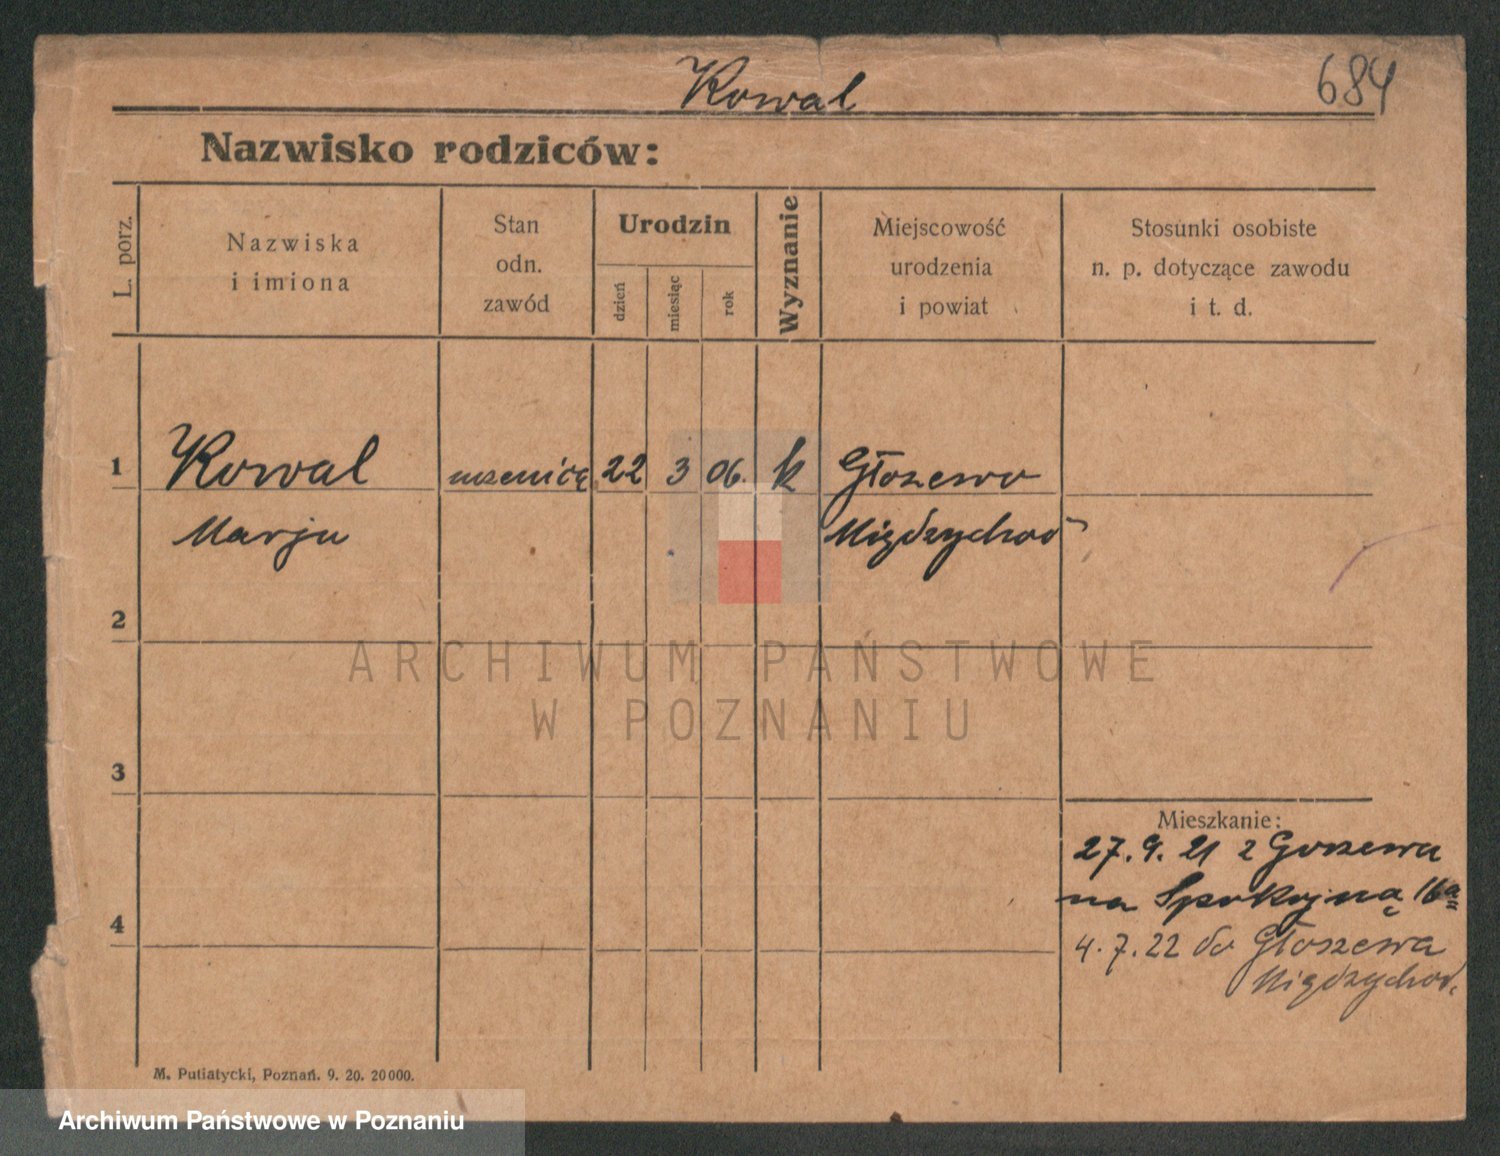 Kowal
684
Nazwisko rodziców:
L. porz.
Nazwiska
i imiona
Stan
odn.
zawód
Urodzin
dzień
miesiąc
rok
Wyznanie
Miejscowość
urodzenia
i powiat
Stosunki osobiste
n. p. dotyczące zawodu
i t. d.
1 Kowal 22 3 06. k Głoszewo
Marja Międzychod
2
3
4
Mieszkanie:
27.9.21 z Goszewa
na Spokojną 16a
4.7.22 do Głoszewa
Międzychod.
M. Putiatycki, Poznań. 9. 20. 20000.
ARCHIWUM PAŃSTWOWE
W POZNANIU
Archiwum Państwowe w Poznaniu